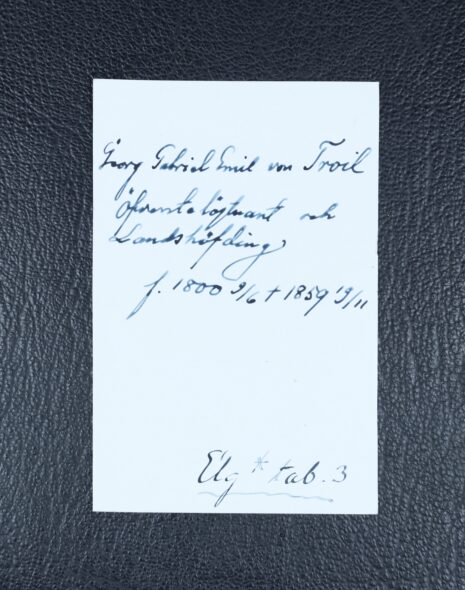 Georg Gabriel Emil von Troil
Öfverstelöjtnant och
Landshöfding
f. 1800 9/6 † 1859 19/11
Elg * tab. 3